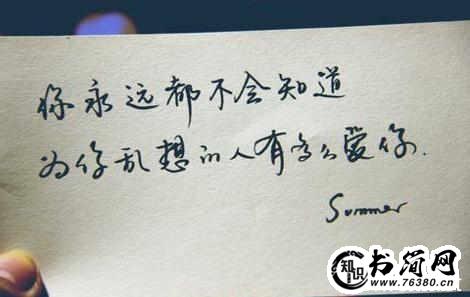 你永远都不会知道
为你乱想的人有多么爱你.
Summer
知识
书简网
www.76380.cn